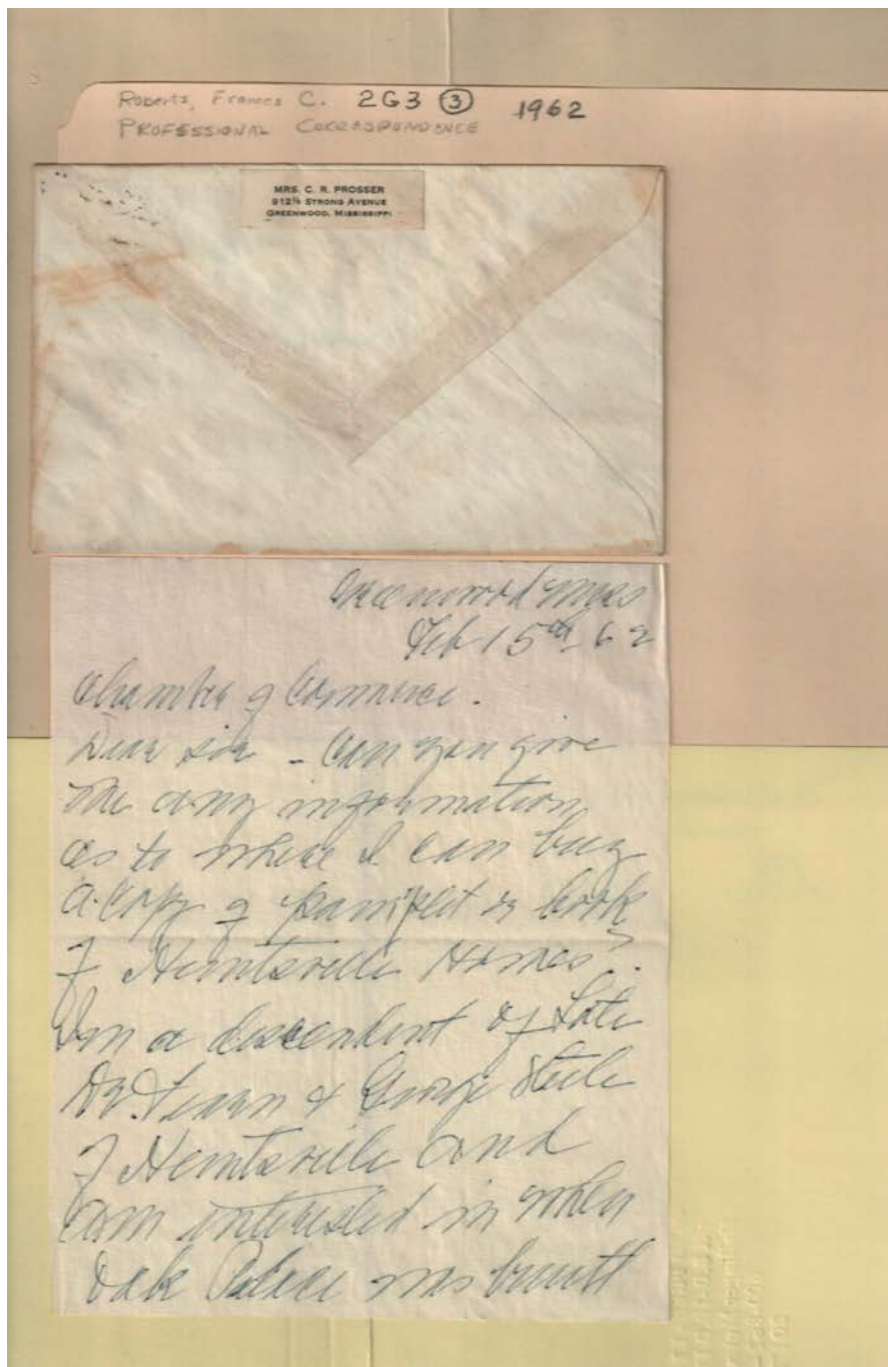 Roberts, Frances C. 2G3 ③ 1962
PROFESSIONAL CORRESPONDENCE
MRS. C. R. PROSSER
912½ STRONG AVENUE
GREENWOOD, MISSISSIPPI
Greenwood Miss
Feb 15th 62
Chamber of Commerce.
Dear sir - Can you give
me any information
as to where I can buy
a copy of pamflet or book
of Huntsville Homes?
Im a descendent of Late
Dr. Fearn & George Steele
of Huntsville and
am interested in when
Oak Place was built